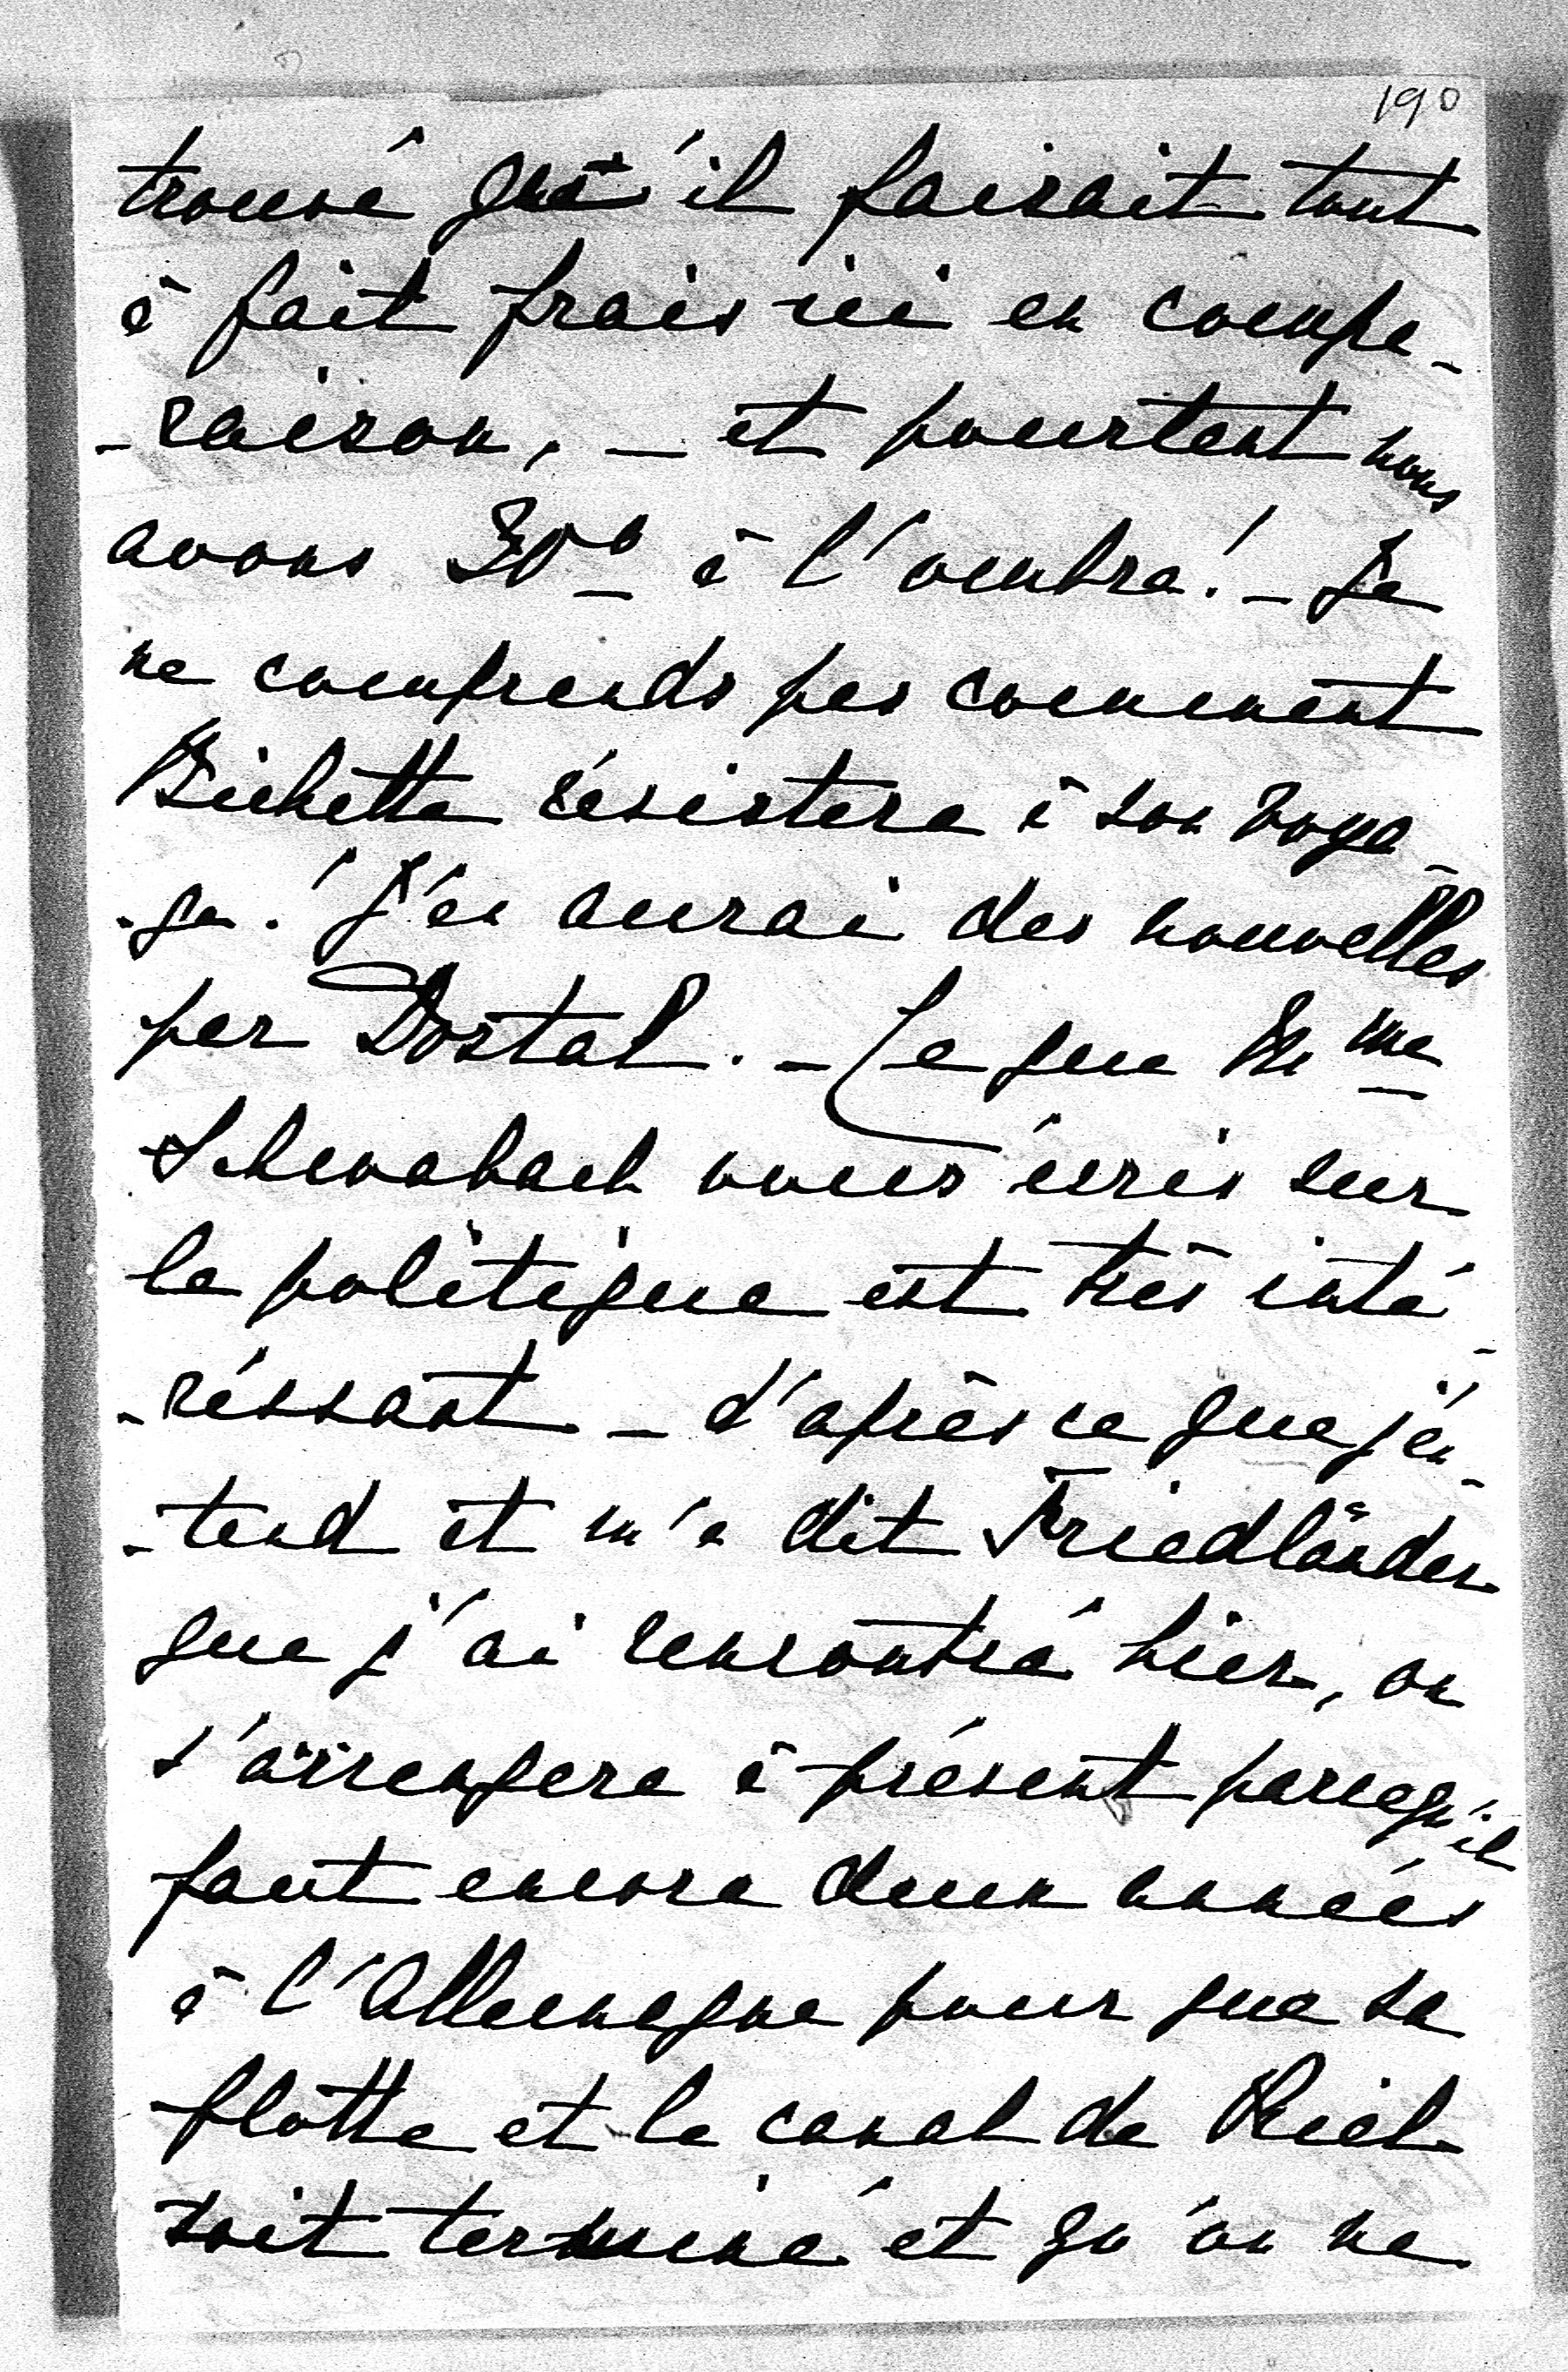 190
trouvé qu'il faisait tout
à fait frais ici en compa-
-raison, - et pourtant nous
avons 30° à l'ombre! - Je
ne comprends pas comment
Bichette résistera à son voya-
-ge! J'en aurai des nouvelles
par Dostal. - Ce que Mme
Schwabach vous écris sur
la politique est très inté-
-réssant - d'après ce que j'en-
-tend et m'a dit Friedländer
que j'ai rencontré hier, on
s'arrangera à présent parcequ'il
faut encore deux années
à l'Allemagne pour que sa
flotte et le canal de Kiel
soit terminé et qu'on ne